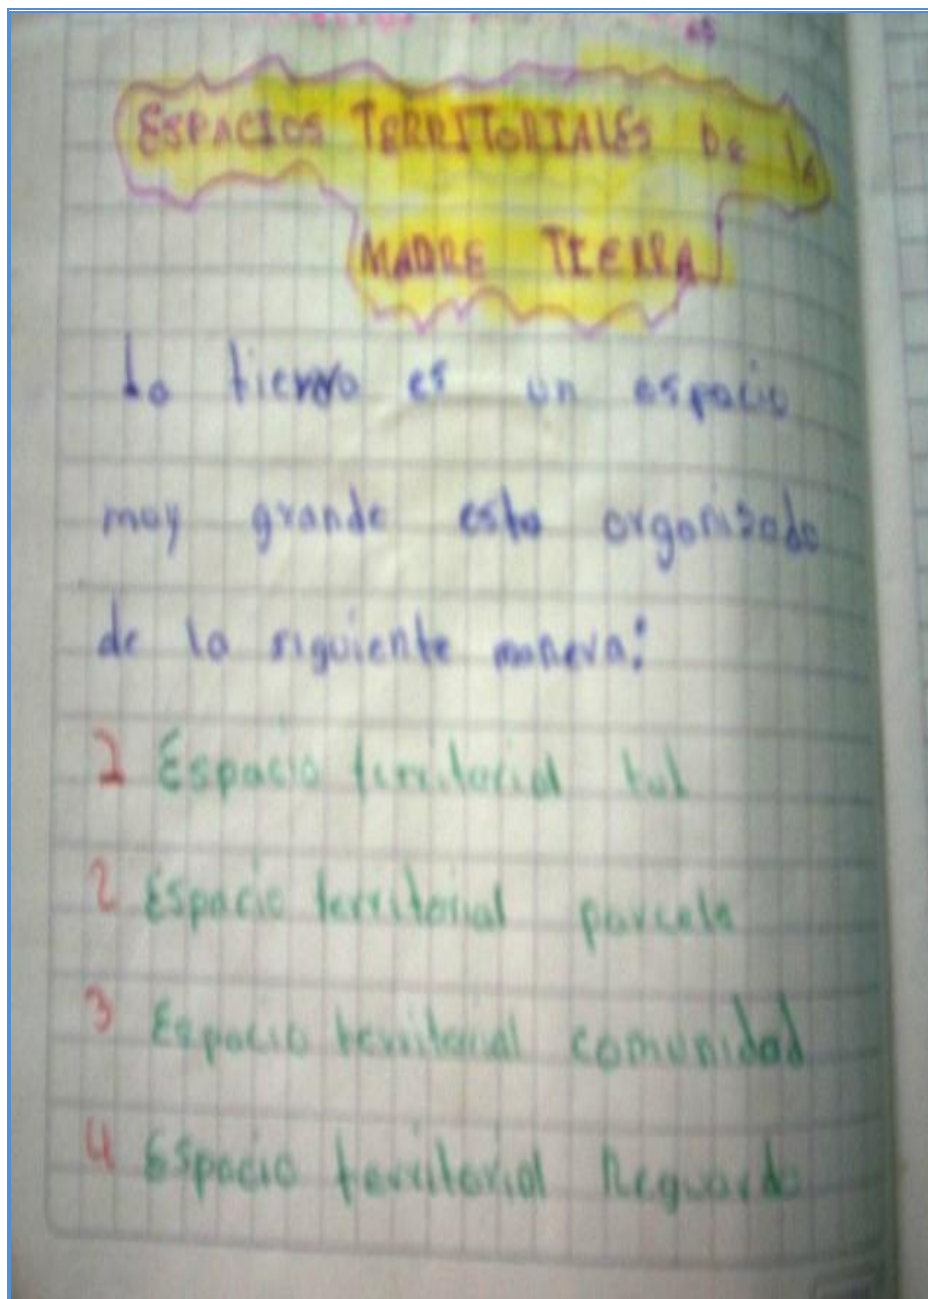 ESPACIOS TERRITORIALES DE la
MADRE TIERRA
La tierra es un espacio
muy grande esta organisado
de la siguiente manera:
1 Espacio territorial tul
2 Espacio territorial parcela
3 Espacio territorial comunidad
4 Espacio territorial Reguardo